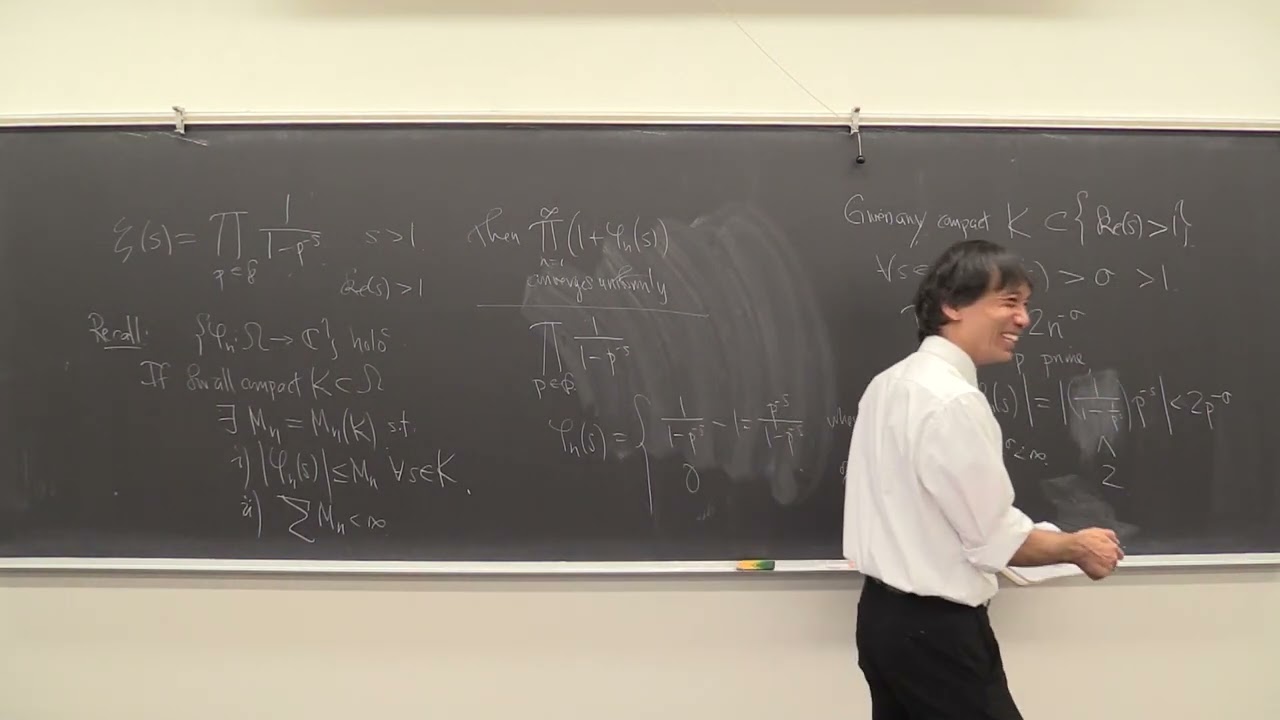 ξ(s) = ∏_{p∈P} 1/(1-p^{-s}) s>1
Re(s)>1
Recall: {φ_n: Ω → ℂ} holo
If for all compact K⊂Ω
∃ M_n = M_n(K) s.t.
i) |φ_n(s)| ≤ M_n ∀s∈K.
ii) ∑ M_n < ∞
Then ∏_{n=1}^{∞} (1+φ_n(s))
converges uniformly
∏_{p∈P} 1/(1-p^{-s})
φ_n(s) = { 1/(1-p^{-s}) - 1 = p^{-s}/(1-p^{-s})
0
Given any compact K ⊂ {Re(s)>1}
∀s∈ ) > σ > 1.
2n^{-σ}
p prime
(s)| = |(1/(1-p^{-s})) p^{-s}| < 2p^{-σ}
<∞ ∧
2